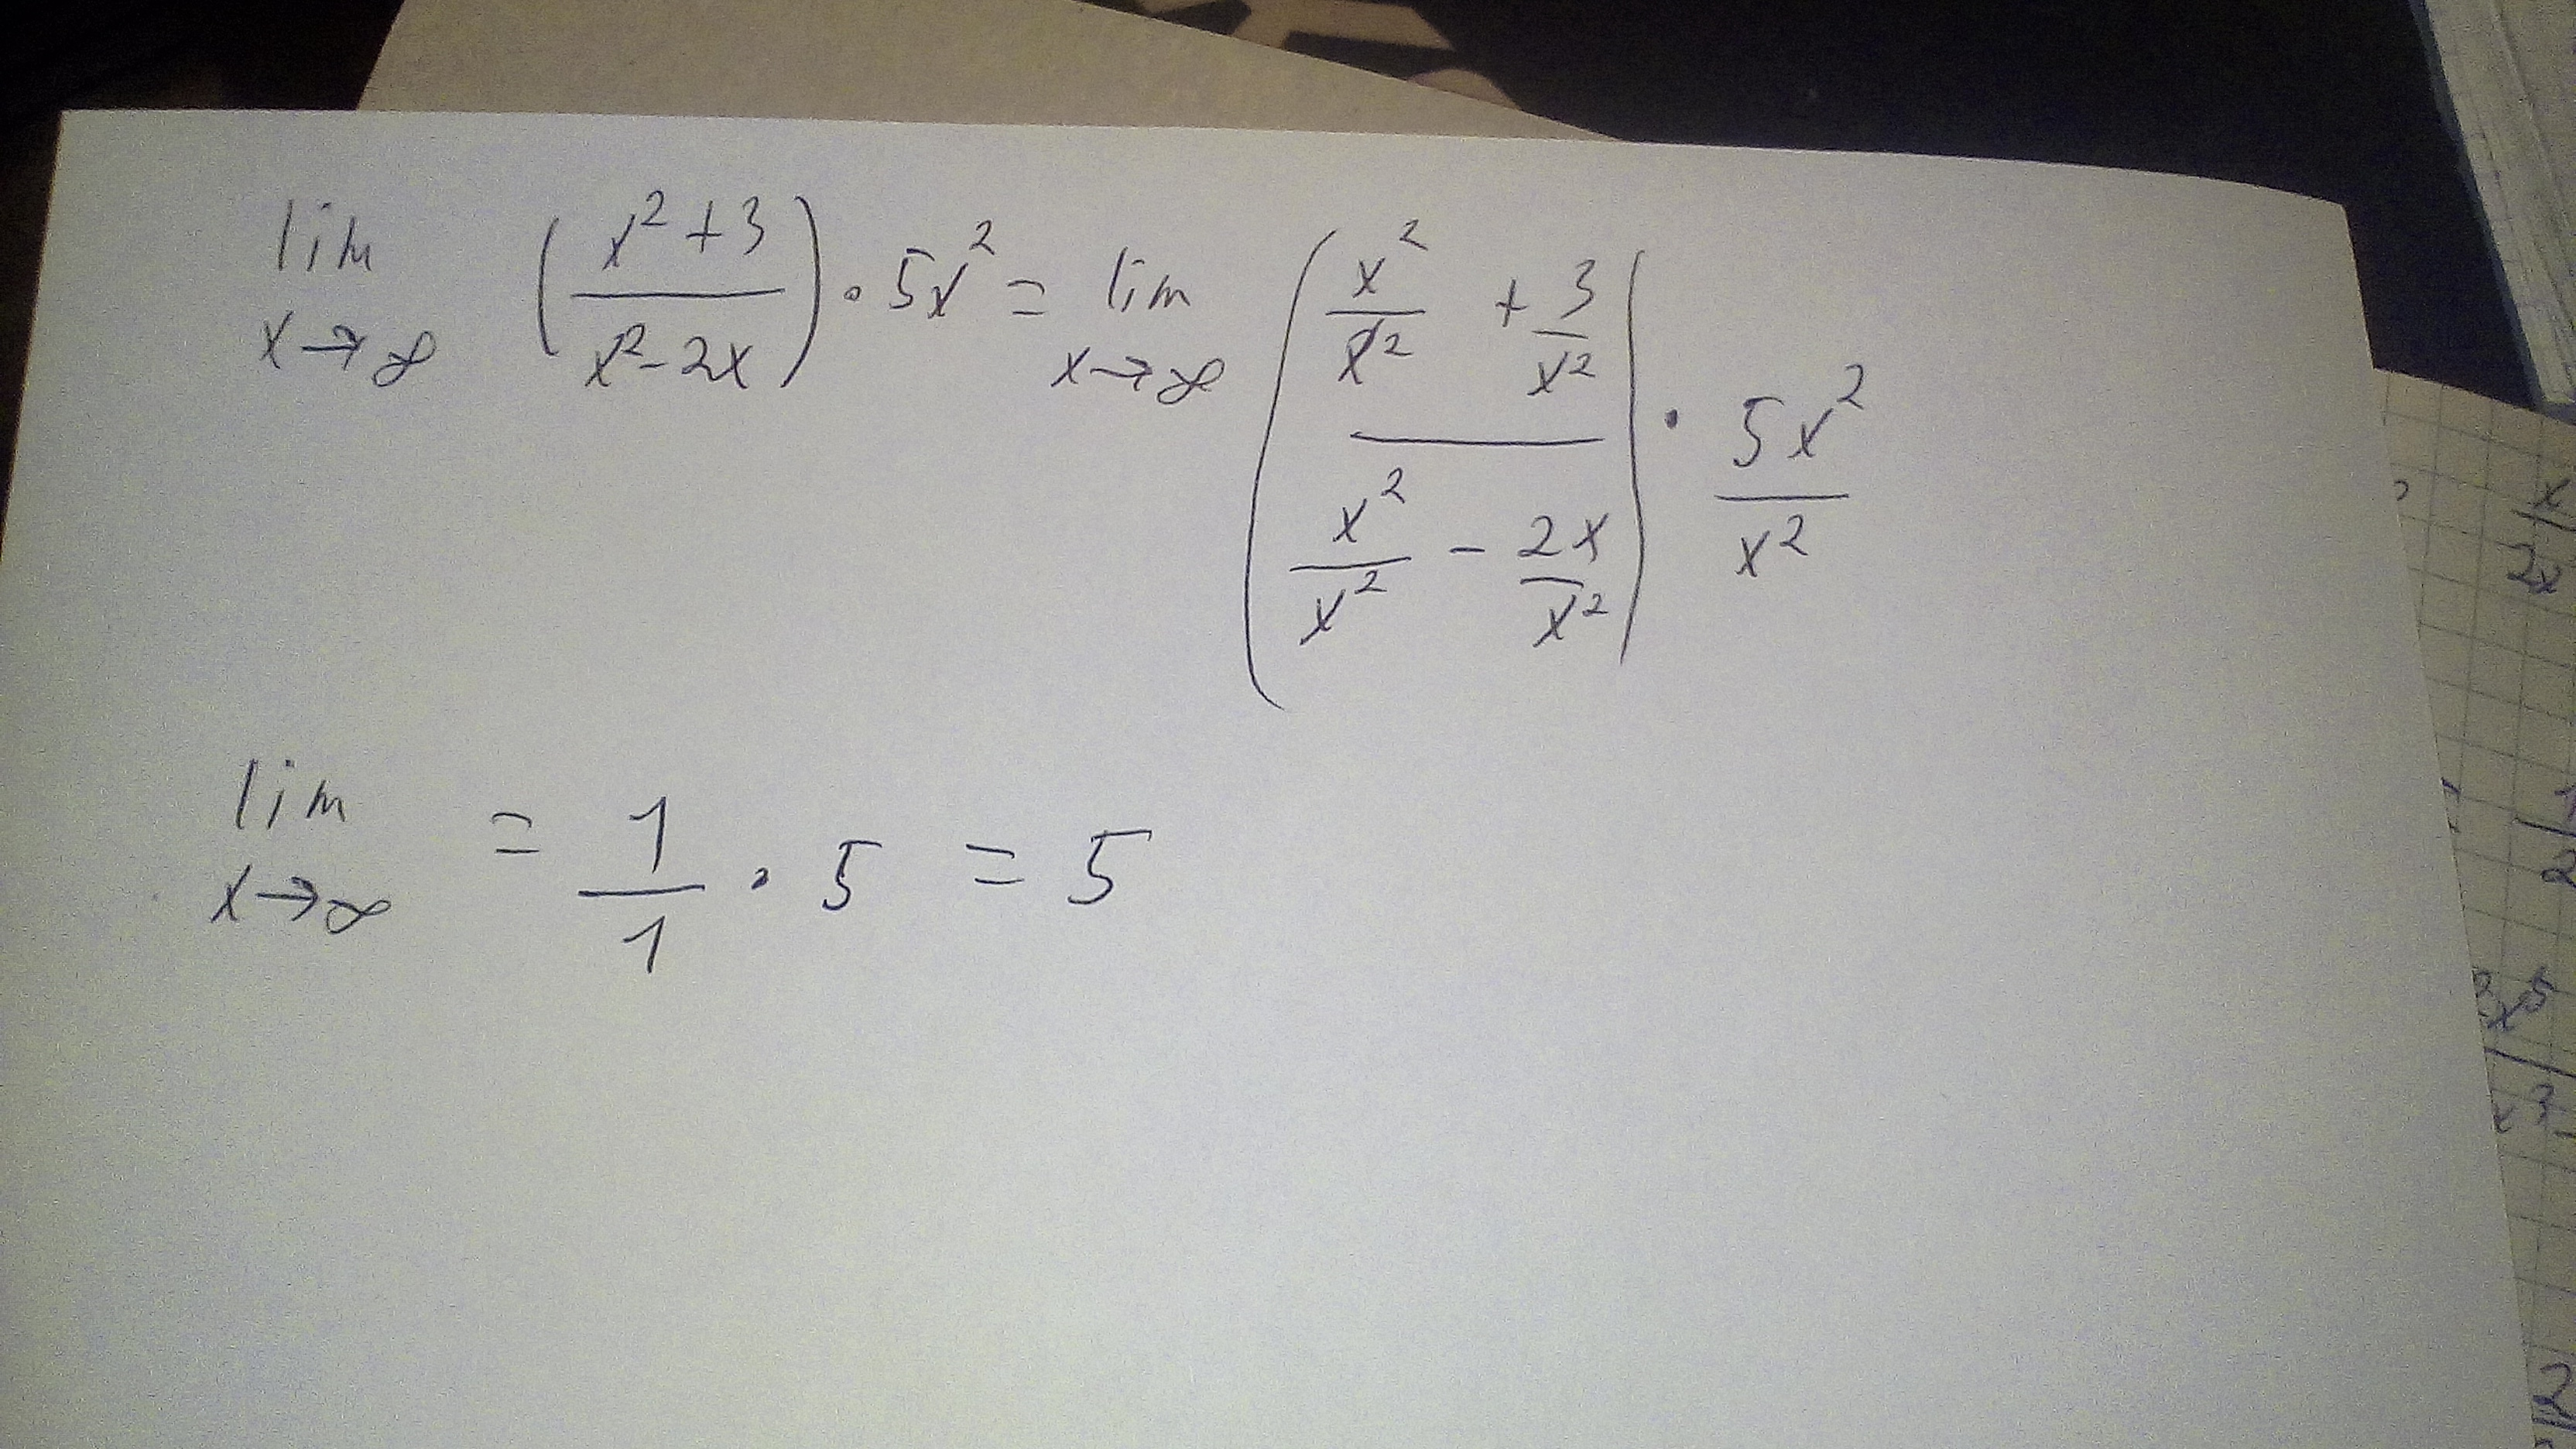 lim x→∞ (x²+3 / x²-2x) · 5x² = lim x→∞ (x²/x² + 3/x² / x²/x² - 2x/x²) · 5x²/x²
lim x→∞ = 1/1 · 5 = 5
x/2x
1/2
x³
2